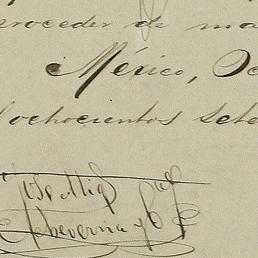 proceder de ma
México, Oc
ochocientos sete
José Migl
Echeverria y Cª